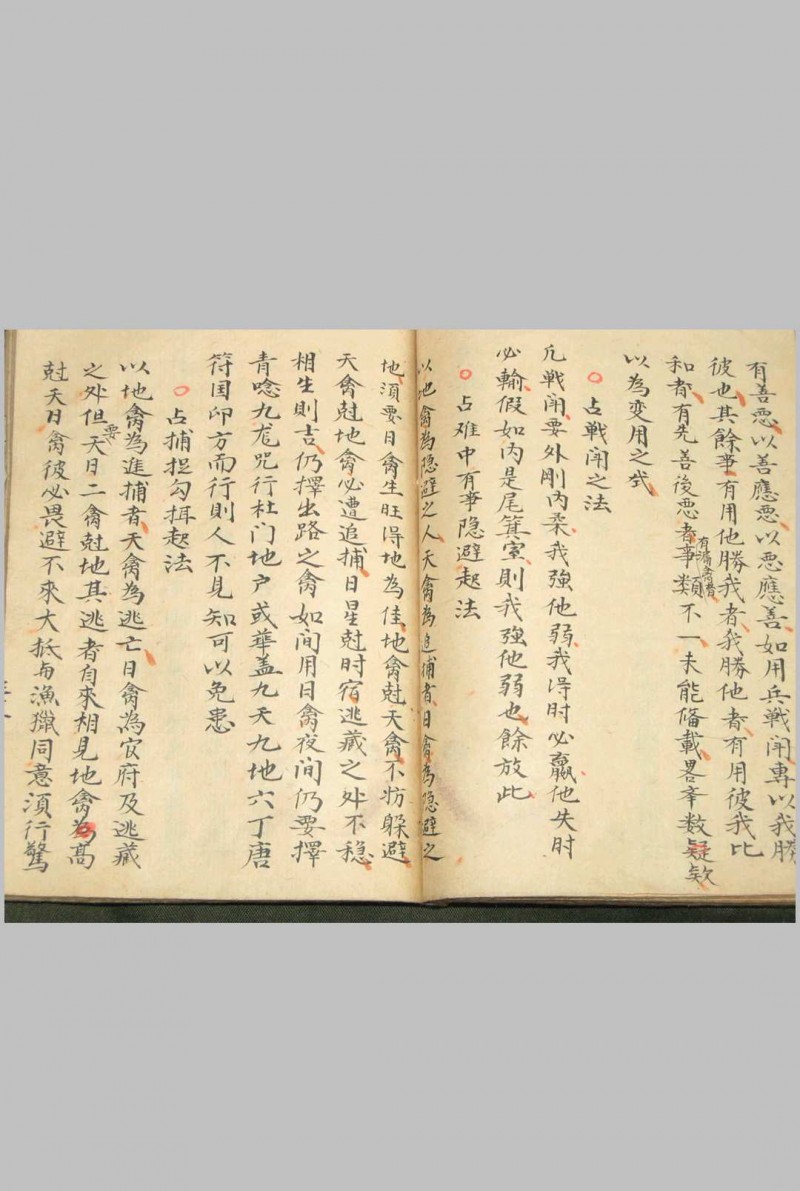 有善惡以善應惡以惡應善如用兵戰鬥專以我勝
彼也其餘事有用他勝我者我勝他者有用彼我比
和者有先善後惡者事類不一未能偹載畧舉数疑欵
有滿禽
以為変用之式
○占戰鬥之法
凢戰鬥要外剛内柔我強他弱我得时必贏他失时
必輸假如内是尾箕室則我強他弱也餘放此
○占难中有事隐避起法
以地禽為隐避之人天禽為追捕者日禽為隐避之
地須要日禽生旺得地為佳地禽尅天禽不妨躱避
天禽尅地禽必遭追捕日星尅时宿逃藏之处不穏
相生則吉仍擇出路之禽如间用日禽夜间仍要擇
青唸九尨咒行杜门地户或華盖九天九地六丁唐
符国印方而行則人不見知可以免患
○占捕捉勾捐起法
以地禽為進捕者天禽為逃亡日禽為官府及逃藏
之处但要天日二禽尅地其逃者自來相見地禽為高
尅天日禽彼必畏避不來大抵与漁獵同意須行驚